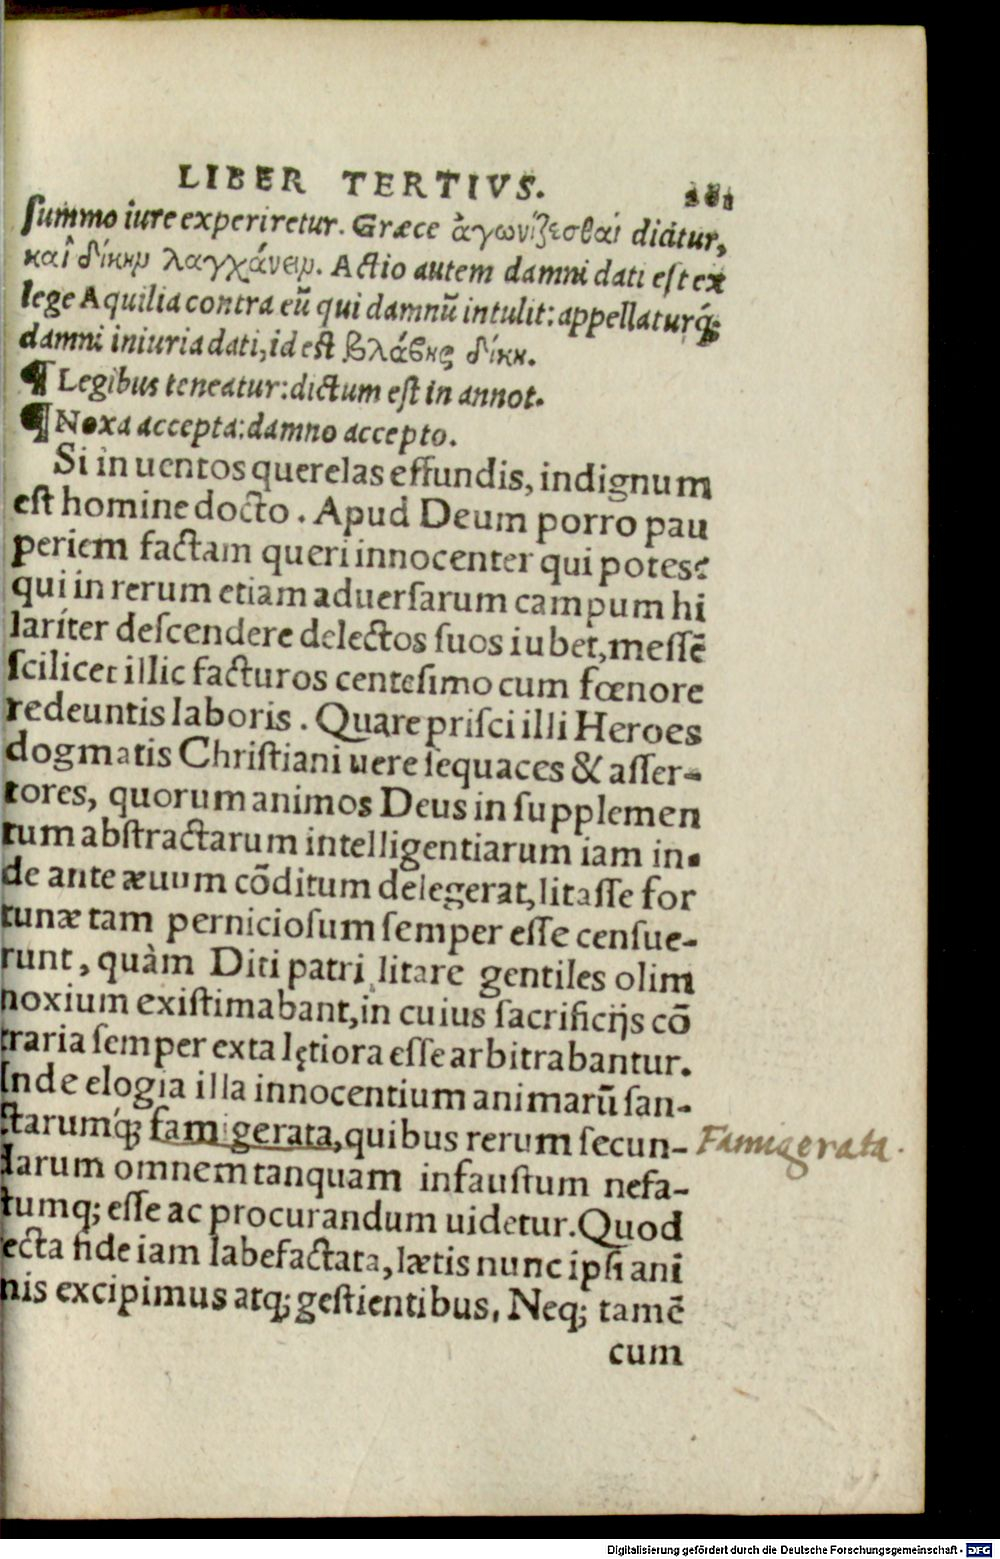 LIBER TERTIVS.
summo iure experiretur. Græce ἀγωνίζεσθαι dicitur,
καὶ δίκην λαγχάνειν. Actio autem damni dati est ex
lege Aquilia contra eũ qui damnũ intulit: appellaturq́;
damni iniuria dati, id est βλάβης δίκη.
¶ Legibus teneatur: dictum est in annot.
¶ Noxa accepta: damno accepto.
Si in uentos querelas effundis, indignum
est homine docto. Apud Deum porro pau
periem factam queri innocenter qui potest
qui in rerum etiam aduersarum campum hi
lariter descendere delectos suos iubet, messẽ
scilicet illic facturos centesimo cum fœnore
redeuntis laboris. Quare prisci illi Heroes
dogmatis Christiani uere sequaces & asser-
tores, quorum animos Deus in supplemen
tum abstractarum intelligentiarum iam in-
de ante æuum cõditum delegerat, litasse for
tunæ tam perniciosum semper esse censue-
runt, quàm Diti patri litare gentiles olim
noxium existimabant, in cuius sacrificijs cõ
traria semper exta lętiora esse arbitrabantur.
Inde elogia illa innocentium animarũ san-
ctarumq́; famigerata, quibus rerum secun-
Famigerata.
darum omnem tanquam infaustum nefa-
stumq; esse ac procurandum uidetur. Quod
ecta fide iam labefactata, lætis nunc ipsi ani
mis excipimus atq; gestientibus. Neq; tamẽ
cum
Digitalisierung gefördert durch die Deutsche Forschungsgemeinschaft - DFG